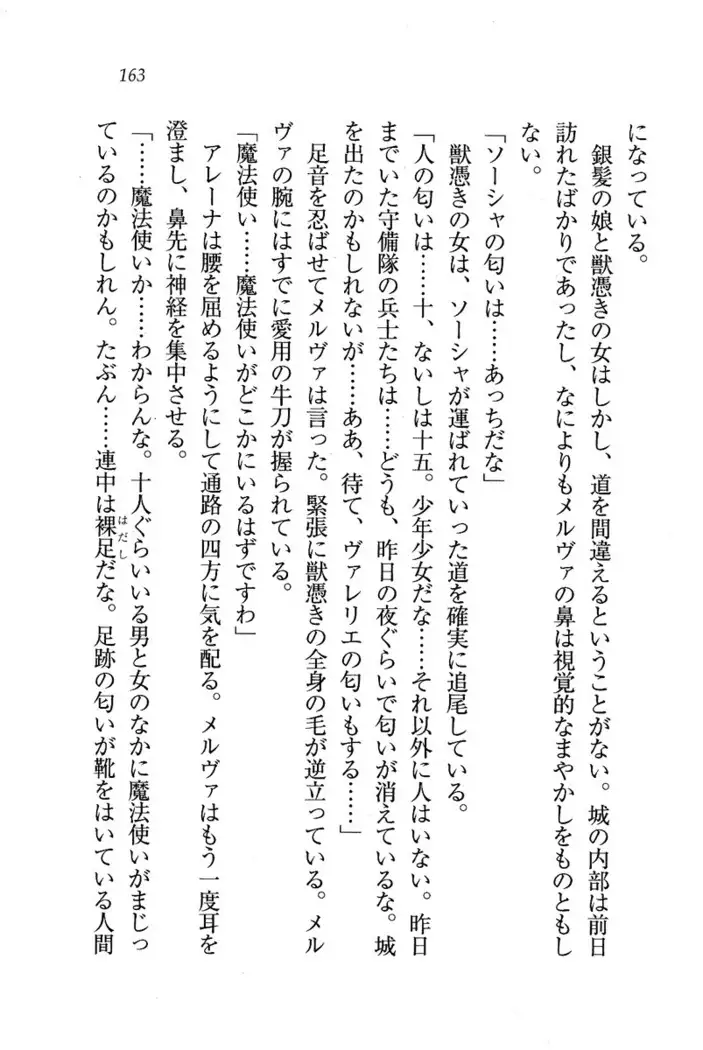 163
になっている。
　銀髪の娘と獣憑きの女はしかし、道を間違えるということがない。城の内部は前日
訪れたばかりであったし、なによりもメルヴァの鼻は視覚的なまやかしをものともし
ない。
「ソーシャの匂いは……あっちだな」
　獣憑きの女は、ソーシャが運ばれていった道を確実に追尾している。
「人の匂いは……十、ないしは十五。少年少女だな……それ以外に人はいない。昨日
までいた守備隊の兵士たちは……どうも、昨日の夜ぐらいで匂いが消えているな。城
を出たのかもしれないが……ああ、待て、ヴァレリエの匂いもする……」
　足音を忍ばせてメルヴァは言った。緊張に獣憑きの全身の毛が逆立っている。メル
ヴァの腕にはすでに愛用の牛刀が握られている。
「魔法使い……魔法使いがどこかにいるはずですわ」
　アレーナは腰を屈めるようにして通路の四方に気を配る。メルヴァはもう一度耳を
澄まし、鼻先に神経を集中させる。
「……魔法使いか……わからんな。十人ぐらいいる男と女のなかに魔法使いがまじっ
ているのかもしれん。たぶん……連中は裸足だな。足跡の匂いが靴をはいている人間
はだし